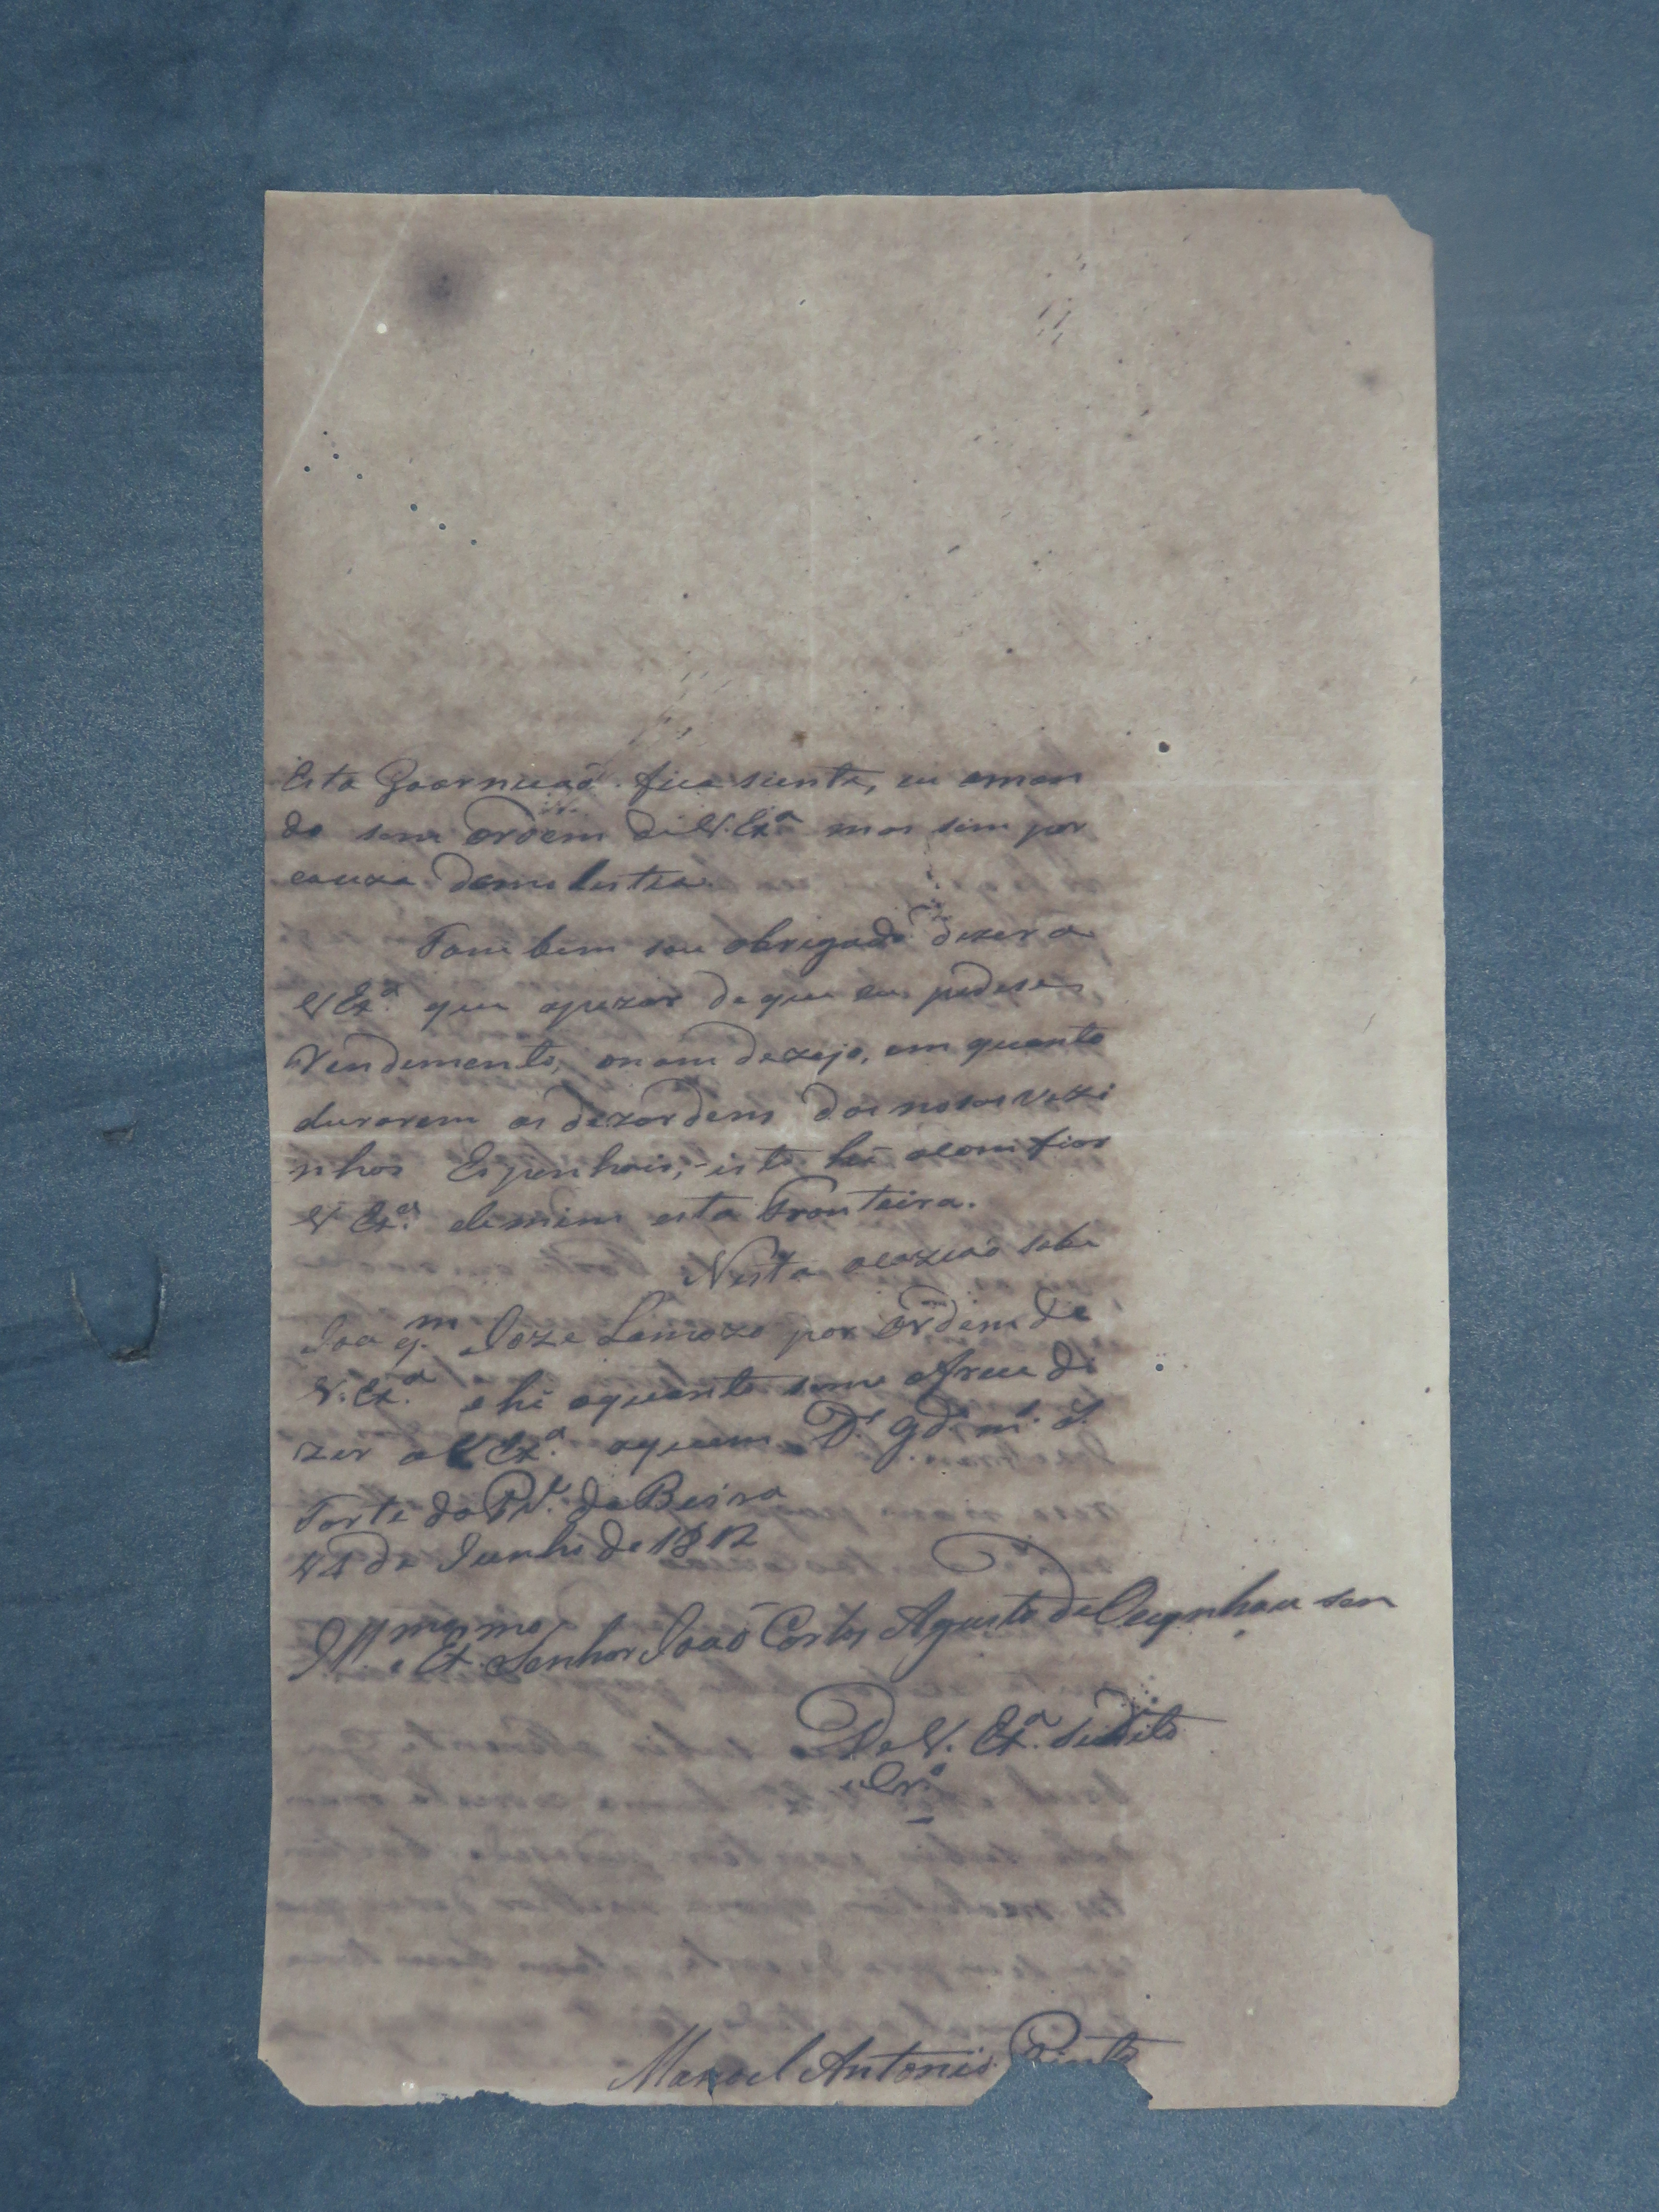 Esta Goarnição fica siente, eu aman
do sem ordem de V. Exª mas sim por
cauza de mulestia.
Tam bem sou obrigado dizer a
V Exª que apezar de que eu pedise
Rendemento, onam dezejo, em quanto
durarem as dezordens dos nosos vezi
nhos Espanhois, isto hé aconifiar
V Exª de mim esta Fronteira.
Nesta ocazião sobe
Joaqm Joze Lemozo por ordem de
V. Exª e hé oquanto seme ofreci di
zer a V Exª aquem Ds gde ms as
Forte do Pe da Beira
14 de Junho de 1812
Illmo e Exmo Senhor João Carlos Agusto de Oeynhau sen
De V. Exª sudito
e Cro
Manoel Antonio Pinto